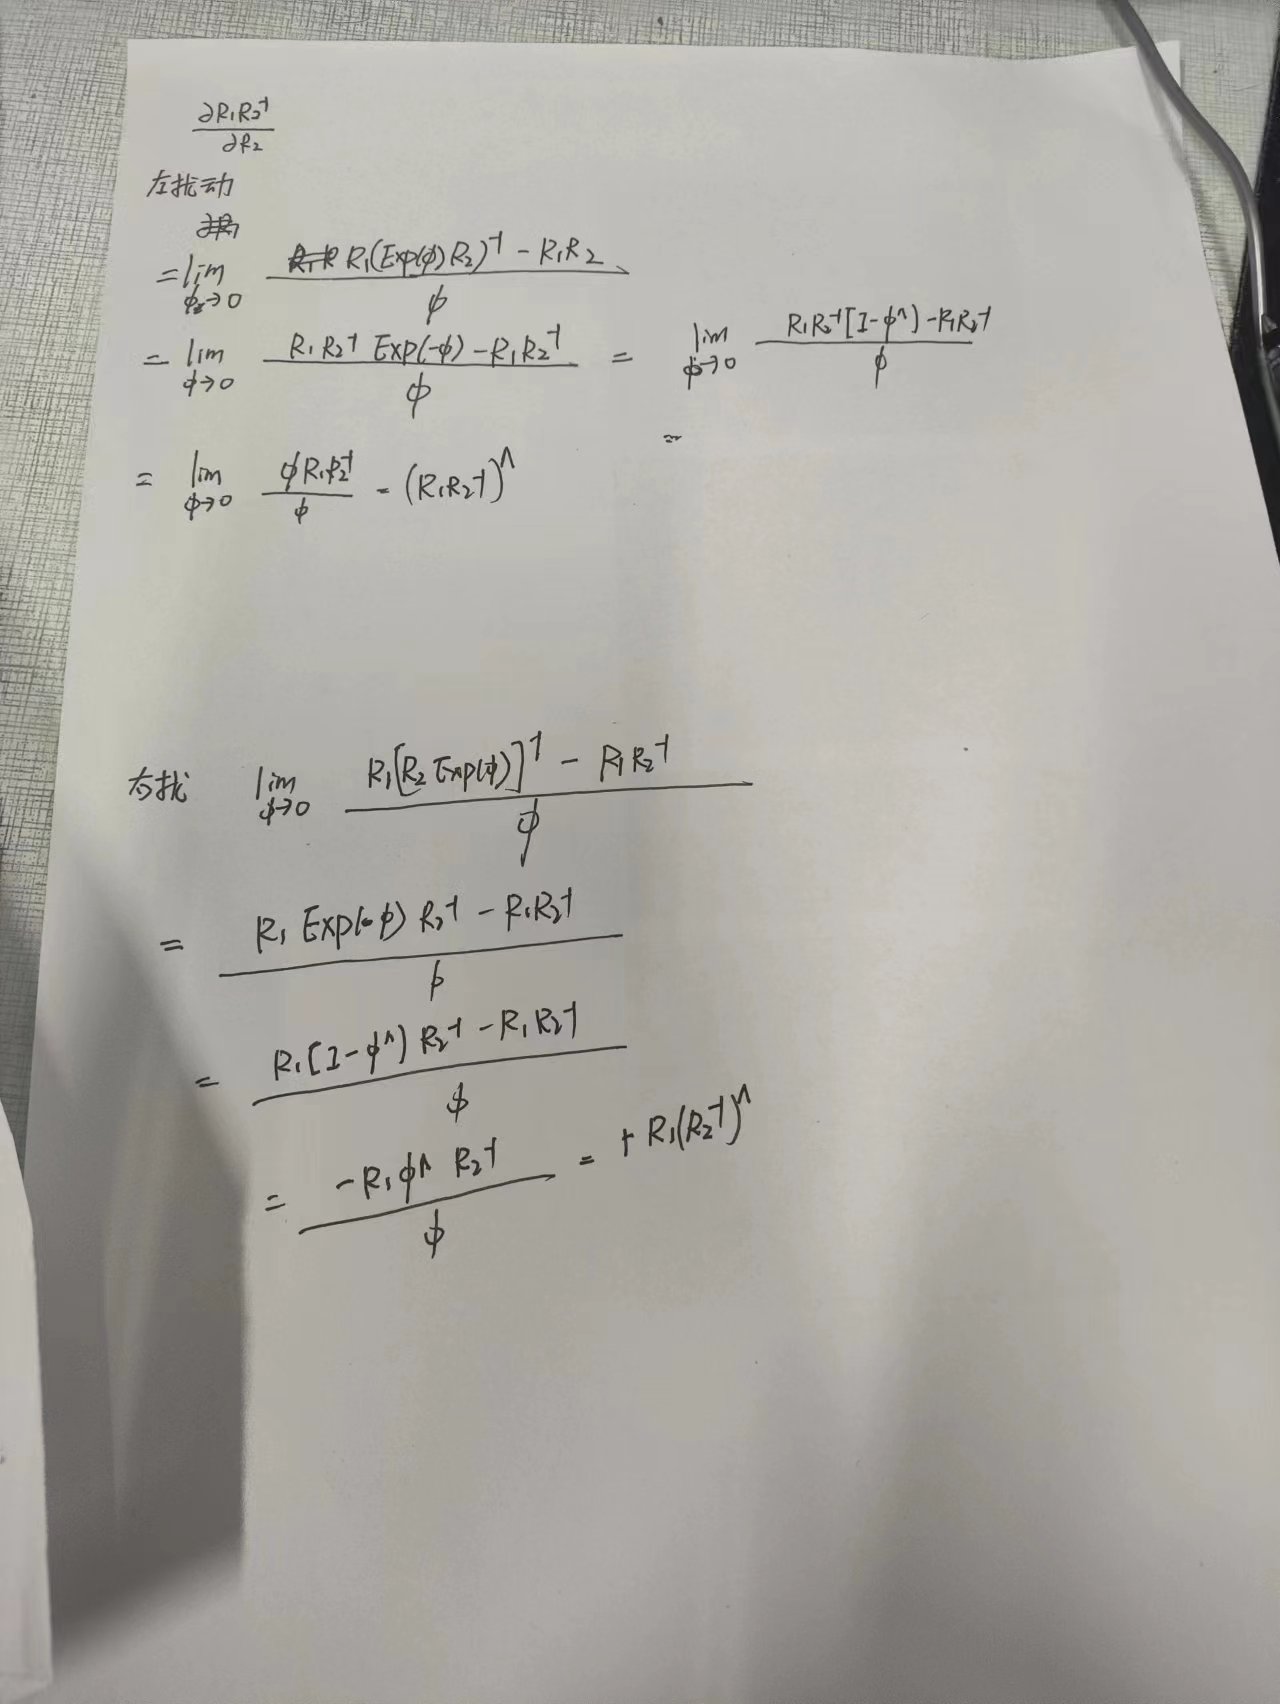 ∂R₁R₂⁻¹ / ∂R₂
左扰动
= lim_{ϕ→0} R₁(Exp(ϕ)R₂)⁻¹ - R₁R₂ / ϕ
= lim_{ϕ→0} R₁R₂⁻¹ Exp(-ϕ) - R₁R₂⁻¹ / ϕ = lim_{ϕ→0} R₁R₂⁻¹[I-ϕ^) - R₁R₂⁻¹ / ϕ
=
= lim_{ϕ→0} ϕR₁R₂⁻¹ / ϕ = (R₁R₂⁻¹)^
右扰 lim_{ϕ→0} R₁[R₂ Exp(ϕ)]⁻¹ - R₁R₂⁻¹ / ϕ
= R₁ Exp(-ϕ) R₂⁻¹ - R₁R₂⁻¹ / ϕ
= R₁[I-ϕ^) R₂⁻¹ - R₁R₂⁻¹ / ϕ
= -R₁ϕ^ R₂⁻¹ / ϕ = + R₁(R₂⁻¹)^